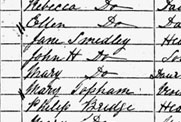 Rebecca Do Dau
Ellen Do Dau
Jane Smedley Hea
John H Do So
Mary Do Daur
Mary Topham
Philip Bridge Hea